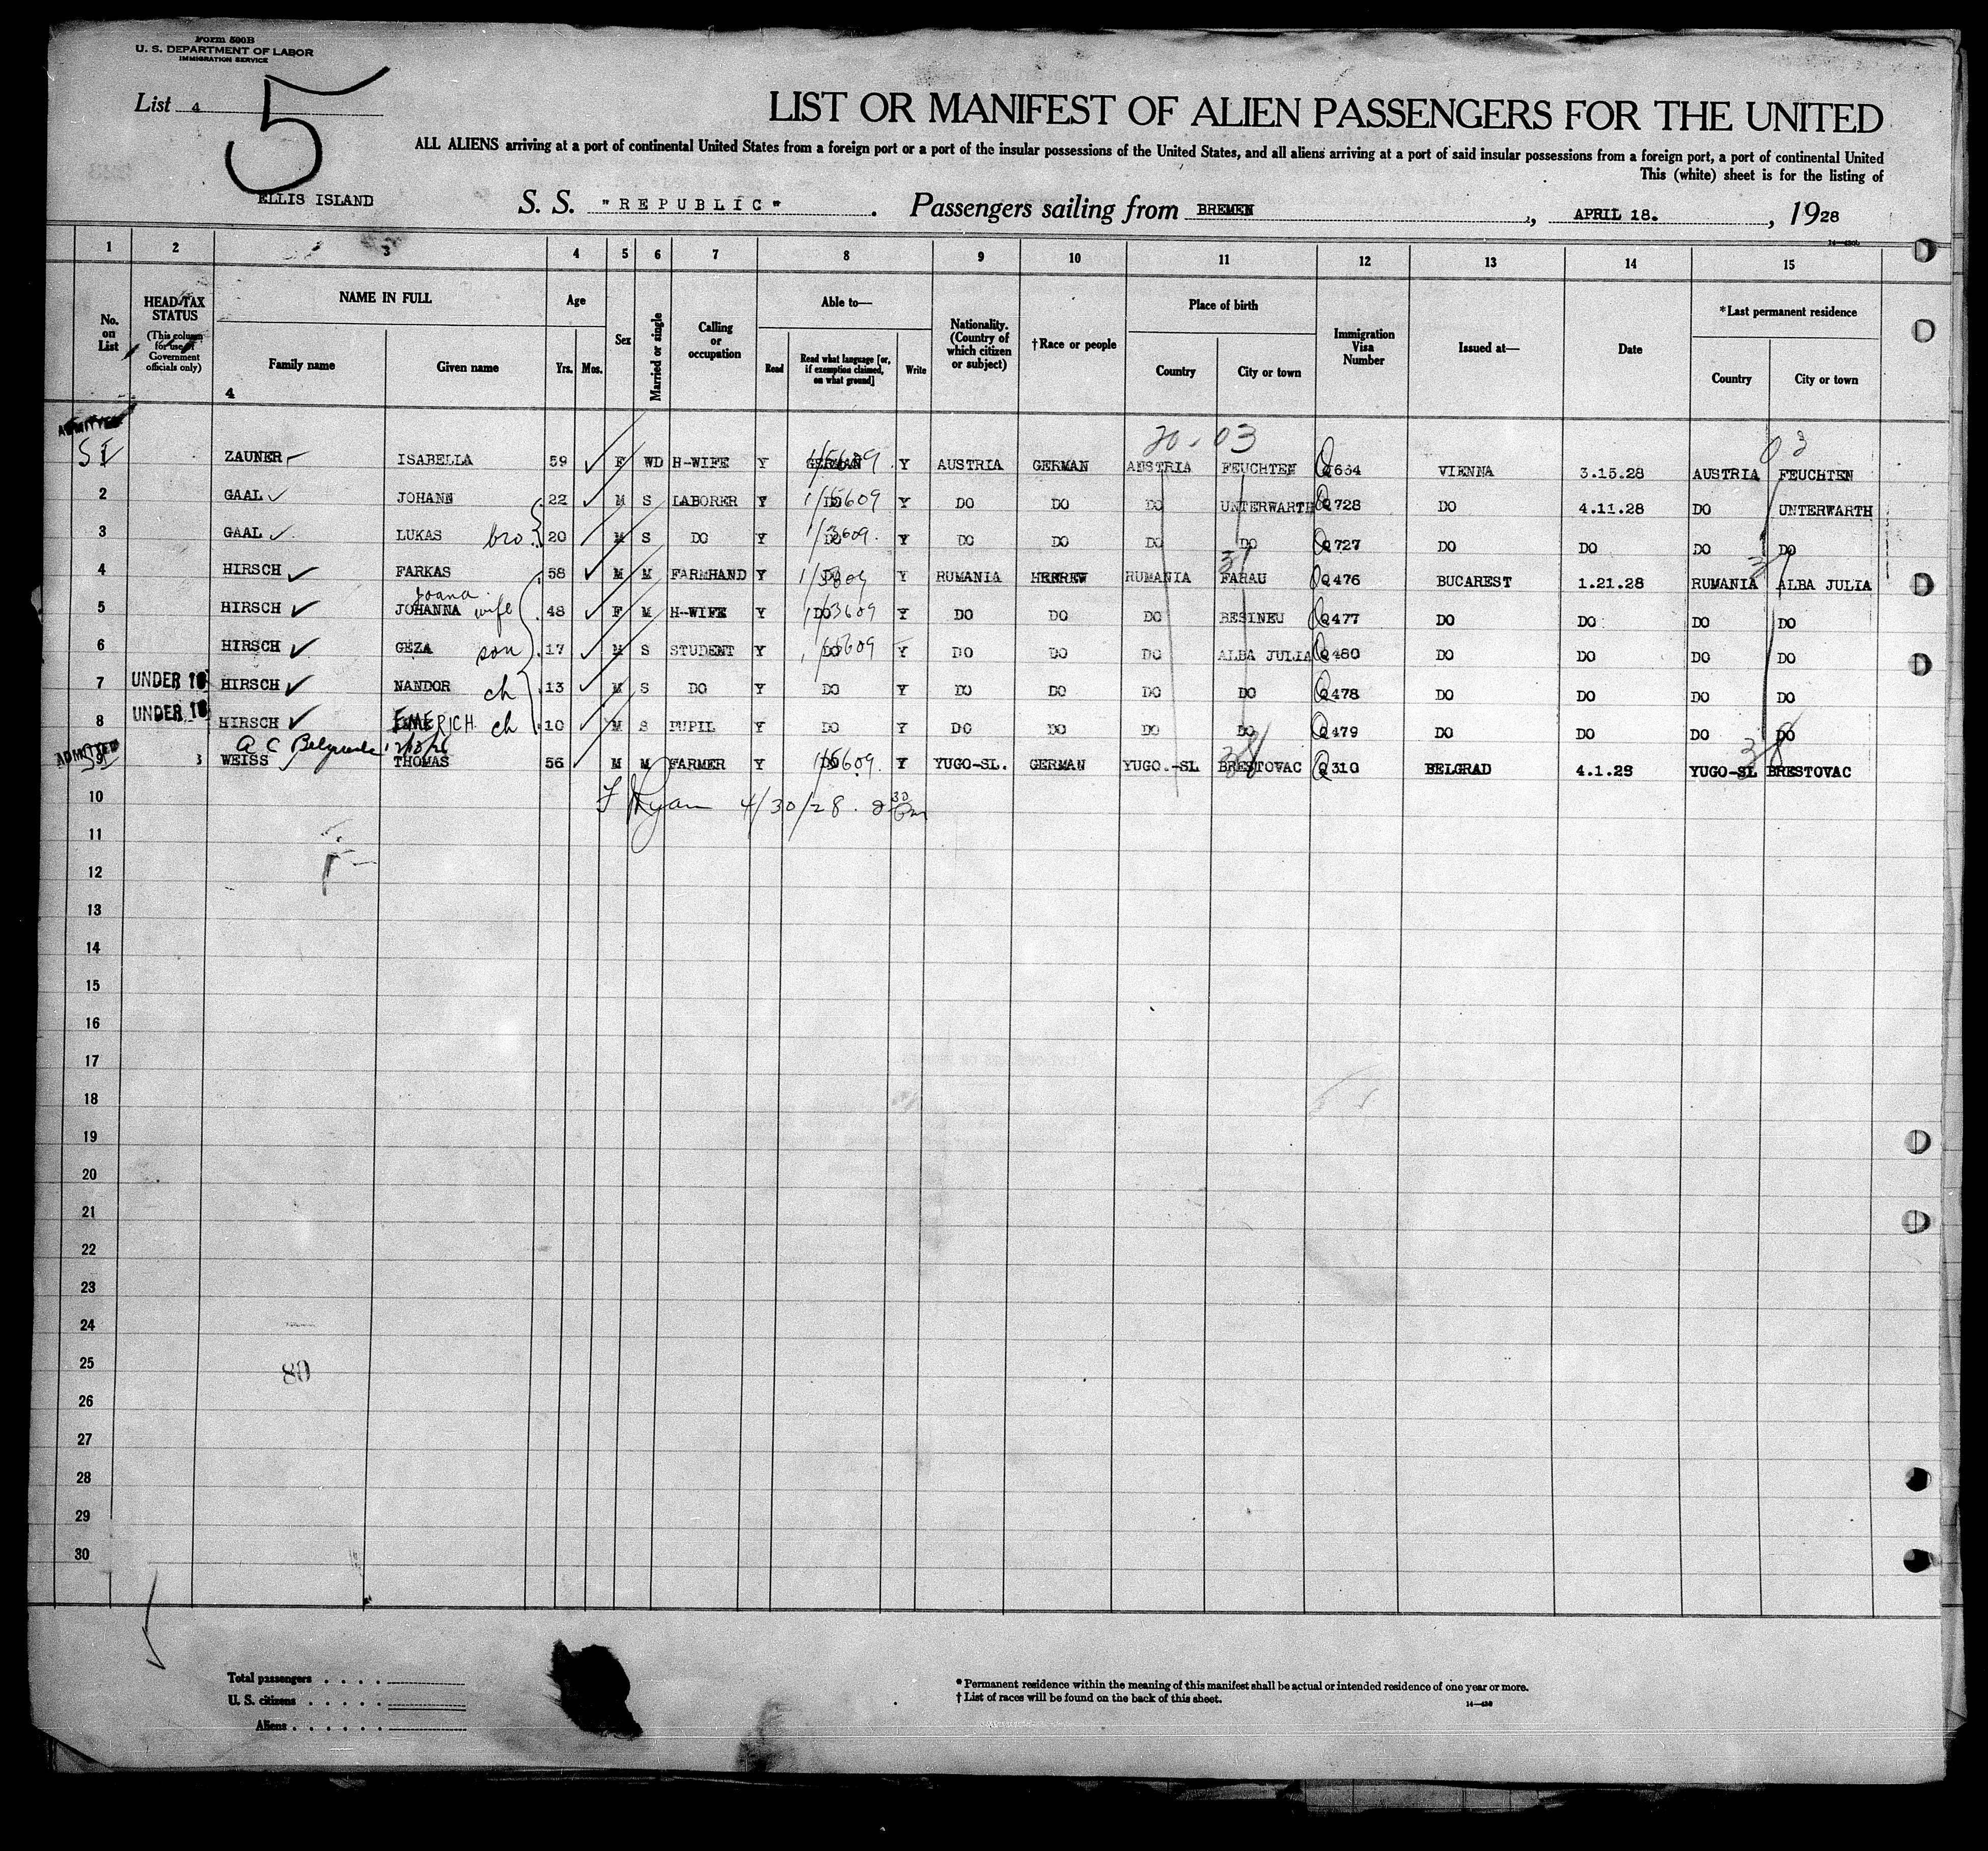 Form 500B
U. S. DEPARTMENT OF LABOR
IMMIGRATION SERVICE
List 4
5
ELLIS ISLAND
LIST OR MANIFEST OF ALIEN PASSENGERS FOR THE UNITED
ALL ALIENS arriving at a port of continental United States from a foreign port or a port of the insular possessions of the United States, and all aliens arriving at a port of said insular possessions from a foreign port, a port of continental United
This (white) sheet is for the listing of
S. S. "REPUBLIC". Passengers sailing from BREMEN, APRIL 18., 1928
1 2 3 4 5 6 7 8 9 10 11 12 13 14 15
No. on List
HEAD-TAX STATUS
(This column for use of Government officials only)
NAME IN FULL
Family name
Given name
4
Age
Yrs. Mos.
Sex
Married or single
Calling or occupation
Able to—
Read
Read what language [or, if exemption claimed, on what ground]
Write
Nationality. (Country of which citizen or subject)
†Race or people
Place of birth
Country
City or town
Immigration Visa Number
Issued at—
Date
*Last permanent residence
Country
City or town
ADMITTED
20-03
03
SI ZAUNER ISABELLA 59 F WD H-WIFE Y GERMAN Y AUSTRIA GERMAN AUSTRIA FEUCHTEN Q664 VIENNA 3.15.28 AUSTRIA FEUCHTEN
2 GAAL JOHANN 22 M S LABORER Y DO Y DO DO DO UNTERWARTH Q728 DO 4.11.28 DO UNTERWARTH
3 GAAL LUKAS bro. 20 M S DO Y DO Y DO DO DO DO Q727 DO DO DO DO
4 HIRSCH FARKAS 58 M M FARMHAND Y DO Y RUMANIA HEBREW RUMANIA FARAU Q476 BUCAREST 1.21.28 RUMANIA ALBA JULIA
Joana
5 HIRSCH JOHANNA wife 48 F M H-WIFE Y DO Y DO DO DO BESINEU Q477 DO DO DO DO
6 HIRSCH GEZA son 17 M S STUDENT Y DO Y DO DO DO ALBA JULIA Q480 DO DO DO DO
7 UNDER 16 HIRSCH NANDOR ch 13 M S DO Y DO Y DO DO DO DO Q478 DO DO DO DO
8 UNDER 16 HIRSCH EMERICH ch 10 M S PUPIL Y DO Y DO DO DO DO Q479 DO DO DO DO
a c Belgrade
ADMITTED 9 3 WEISS THOMAS 56 M M FARMER Y DO Y YUGO-SL. GERMAN YUGO.-SL BRESTOVAC Q310 BELGRAD 4.1.28 YUGO-SL BRESTOVAC
10 F Ryan 4/30/28 2 30 Pm
11
12
13
14
15
16
17
18
19
20
21
22
23
24
25
80
26
27
28
29
30
Total passengers
U. S. citizens
Aliens
*Permanent residence within the meaning of this manifest shall be actual or intended residence of one year or more.
†List of races will be found on the back of this sheet.
14—430